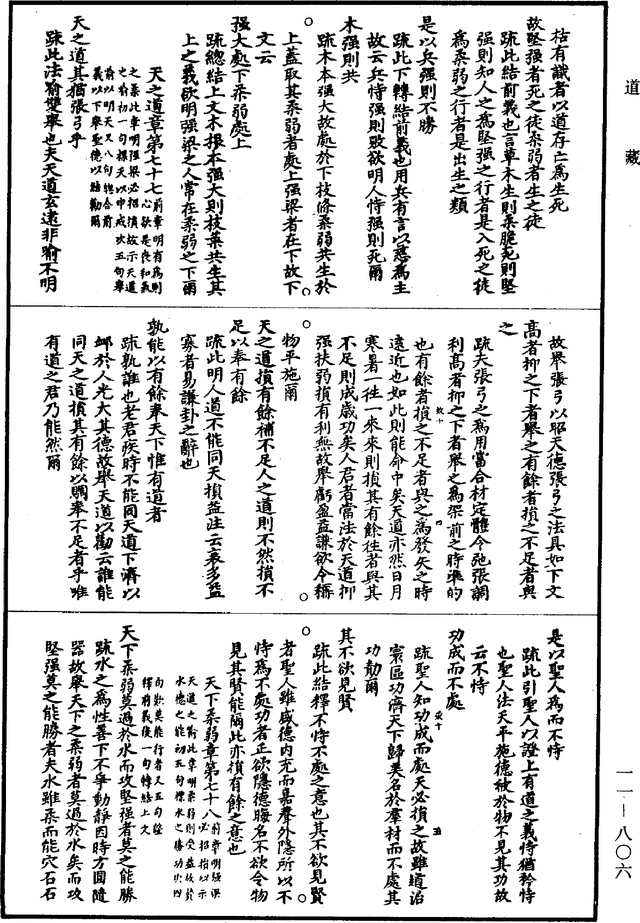 道藏
枯有識者以道存亡為生死
故堅強者死之徒柔弱者生之徒
疏此結前義也言草木生則柔脆死則堅
強則知人之為堅強之行者是入死之徒
為柔弱之行者是出生之類
是以兵強則不勝
疏此下轉結前義也用兵有言以慈為主
故云兵恃強則敗欲明人恃強則死爾
木強則共
疏木本強大故處於下枝條柔弱共生於
上蓋取其柔弱者處上強梁者在下故下
文云
強大處下柔弱處上
疏總結上文木根本強大則枝葉共生其
上之義欲明強梁之人常在柔弱之下爾
天之道章第七十七
前章明有為則心欲是喪和氣
之柔此章明強梁必招損故示天道
之前初一句標天以申戒次五句舉
前以明天又八句總合前
義以下舉聖德以結勸爾
天之道其猶張弓乎
疏此法喻雙舉也夫天道玄遠非喻不明
故舉張弓以昭天德張弓之法具如下文
高者抑之下者舉之有餘者損之不足者與
之
疏夫張弓之為用當合材定體令弛張調
利高者抑之下者舉之為架前之時準的
也有餘者損之不足者與之為發矢之時
遠近也如此則能命中矣天道亦然日月
寒暑一往一來來則損其有餘往者與其
不足則成歲功矣人君者當法於天道抑
強扶弱損有利無故舉虧盈益謙欲令稱
物平施爾
天之道損有餘補不足人之道則不然損不
足以奉有餘
疏此明人道不能同天損益注云裒多益
寡者易謙卦之辭也
孰能以有餘奉天下惟有道者
疏孰誰也老君疾時不能同天道下濟以
邮於人光大其德故舉天道以勸云誰能
同天之道損其有餘以賙奉不足者乎唯
有道之君乃能然爾
是以聖人為而不恃
疏此引聖人以證上有道之義恃猶矜恃
也聖人法天平施德被於物不見其功故
云不恃
功成而不處
疏聖人知功成而處天必損之故雖道洽
寰區功濟天下歸美名於羣材而不處其
功勣爾
其不欲見賢
疏此結釋不恃不處之意也其不欲見賢
者聖人雖盛德內充而嘉聲外隱所以不
恃為不處功者正欲隱德晦名不欲令物
見其賢能爾此亦損有餘之意也
天下柔弱章第七十八
前章明強梁必招損以示
天道之此章明柔弱則受益故贊
水德之能初五句標水之勝功次四
句歎莫能行者又五句證
釋前義後一句轉結上文
天下柔弱莫過於水而攻堅強者莫之能勝
疏水之為性善下不爭動靜因時方圓隨
器故舉天下之柔弱者莫過於水矣而攻
堅強莫之能勝者夫水雖柔而能穴石石
一一—八〇六